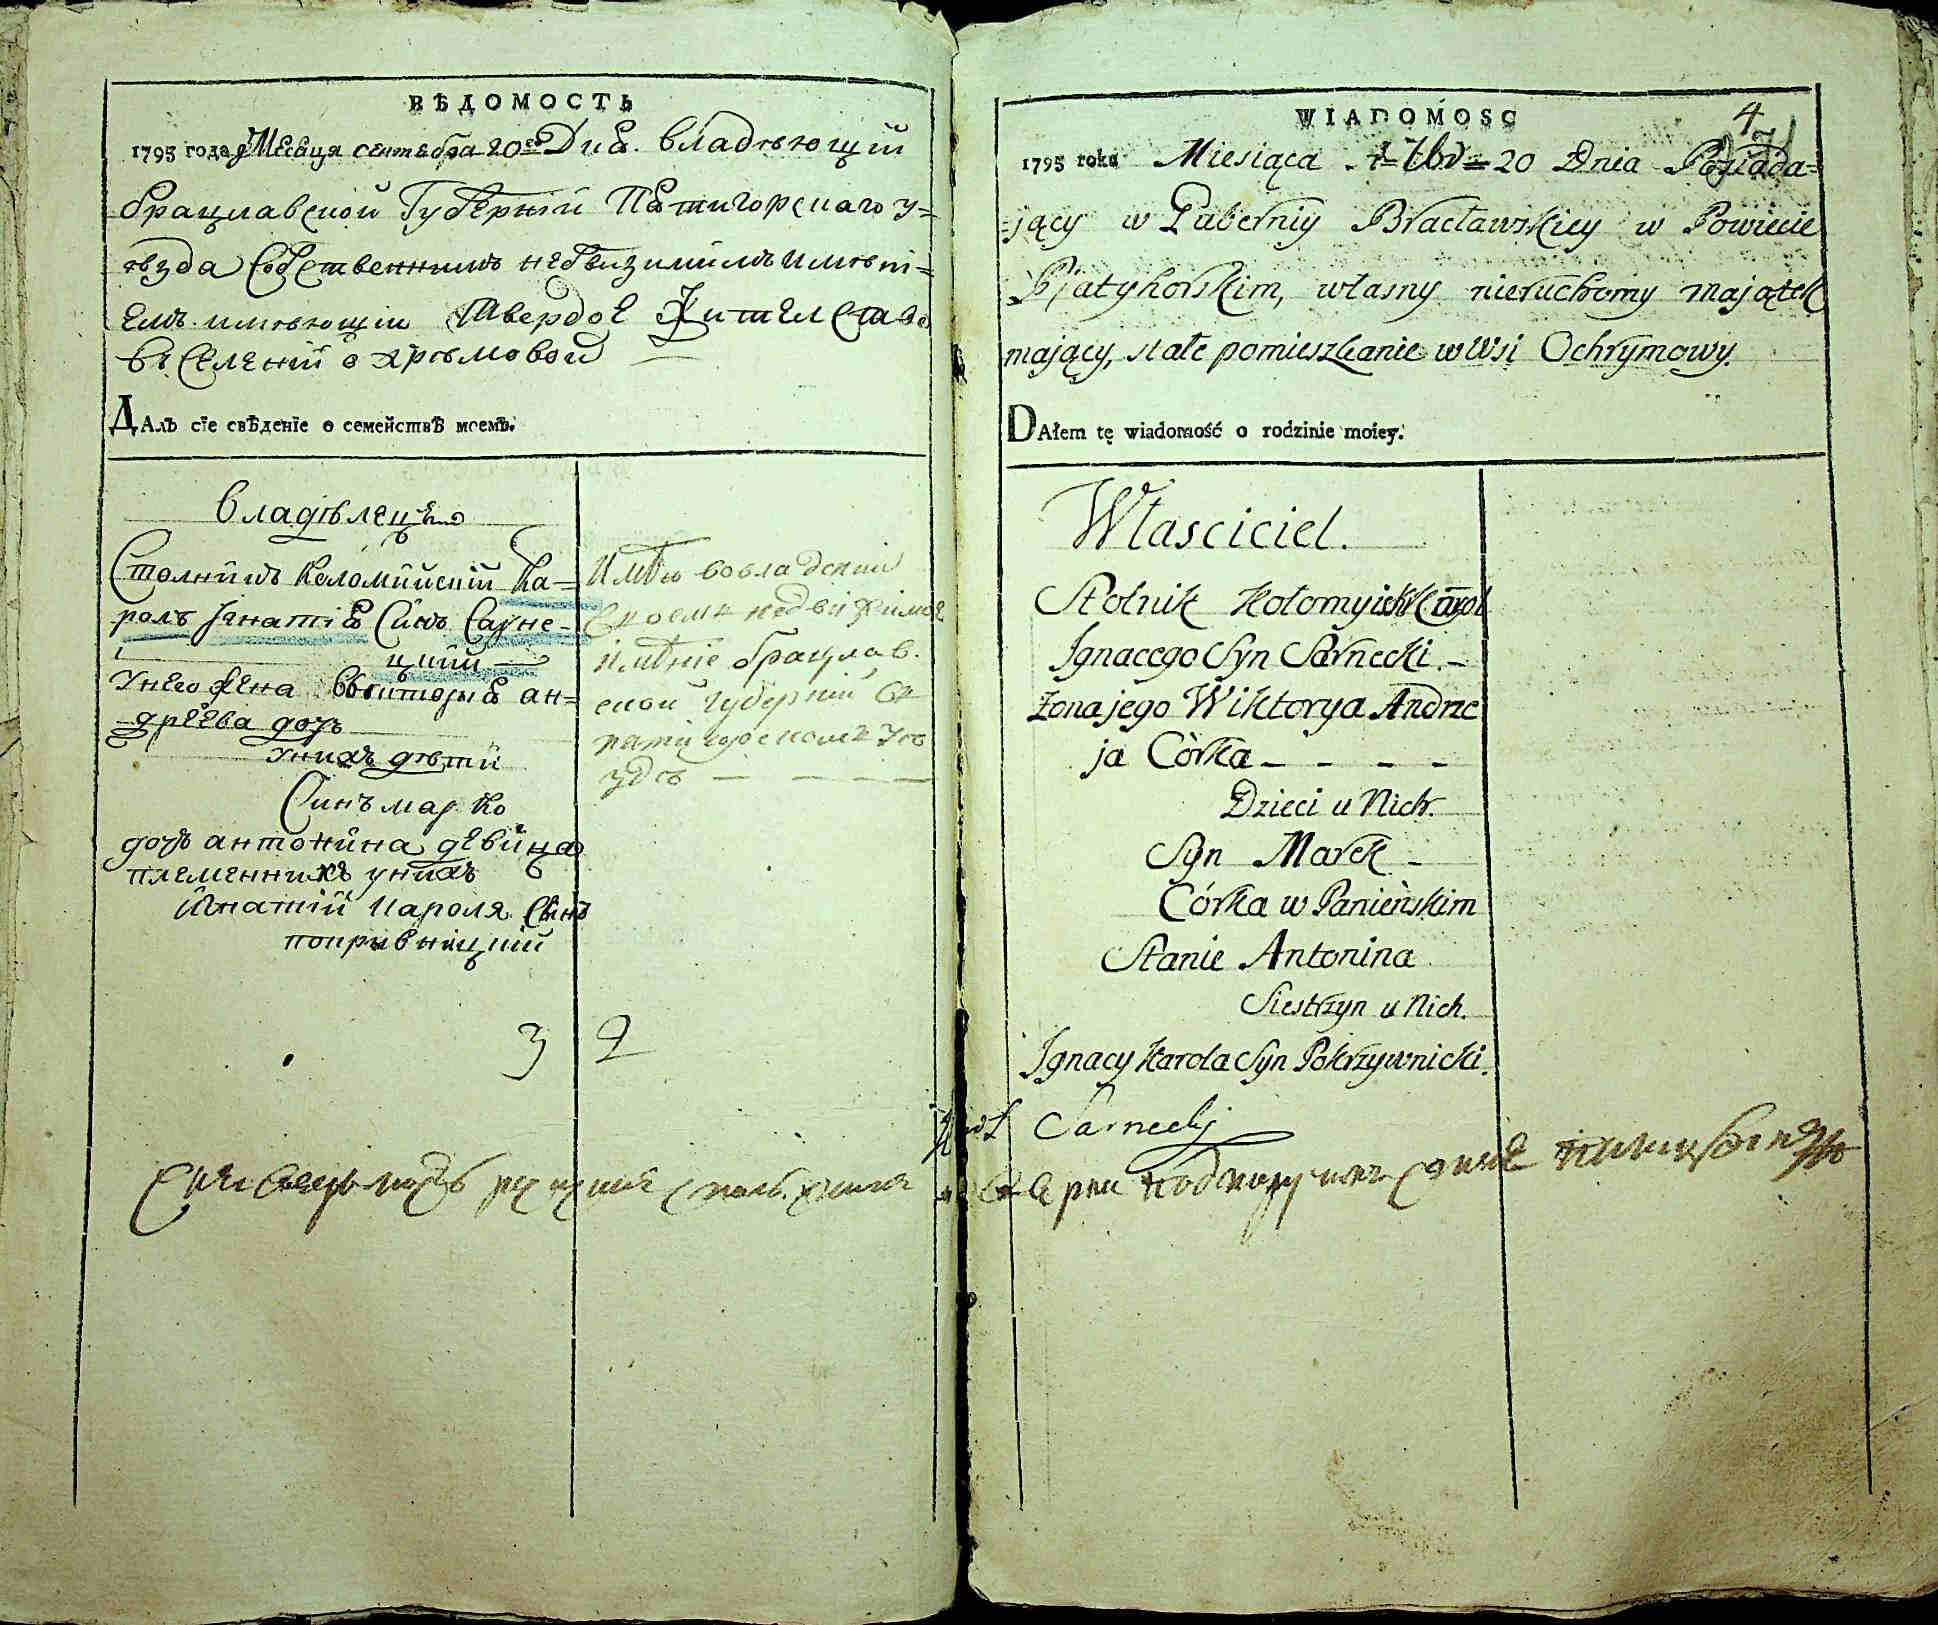 ВѢДОМОСТЬ
1795 года Месяца сентебра 20го Дня. Владѣющій
брацлавской Губѣрніи Пятигорскаго у=
ѣзда Собственнимъ недвизимимъ имѣні=
емъ имѣющій Твердое Жителство
въ селеніи охрѣмовой
ДАлъ сїе свѣденїе о семействѣ моемъ.
Владѣлецъ
Столникъ Коломийскій Ка=
ролъ Игнатія Синъ Сарне=
цкий
Унего Жена Викторыя ан=
дрѣева дочъ
Унихъ дѣти
Синъ марко
дочъ антонина девица
племенникъ унихъ
Игнатій Кароля Синъ
покривницкій
Имѣю вовладеніи
своемъ недвижимое
имѣніе брацлав.
ской губерніи въ
пятигорскомъ уѣ
здѣ
3 2
WIADOMOSC
4
1795 roku Miesiąca 7br 20 Dnia Posiada=
=jący w Guberniy Bracławskiey w Powiecie
Piatyhorskim, własny nieruchomy majątek
mający, stałe pomieszkanie w Wsi Ochrymowy.
DAłem tę wiadomość o rodzinie moiey.
Własciciel.
Stolnik Kołomyiski Karol
Ignacego Syn Sarnecki.
Żona jego Wiktorya Andrze
ja Córka
Dzieci u Nich.
Syn Marek
Córka w Panieńskim
Stanie Antonina
Siestrzyn u Nich.
Ignacy Karola Syn Pokrzywnicki.
Karol Sarnecki